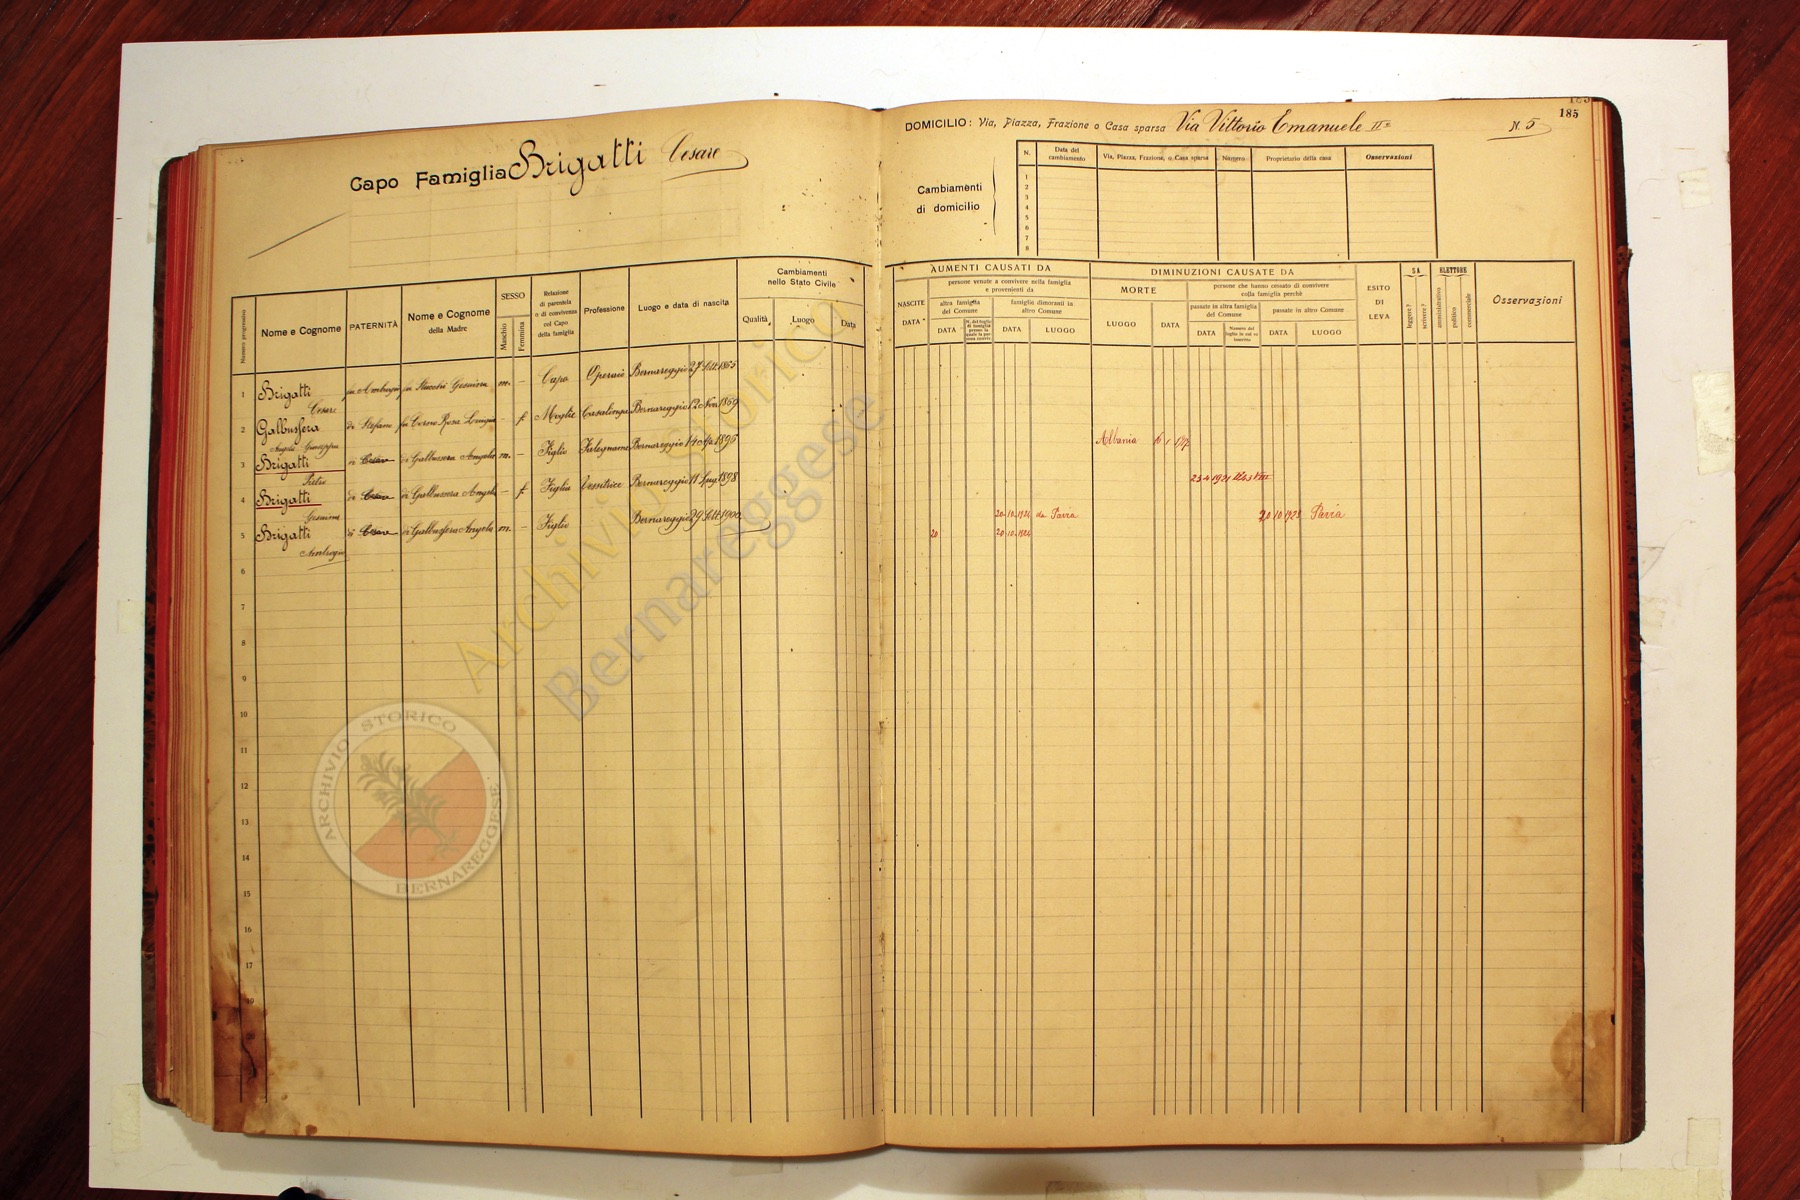 185
DOMICILIO: Via, Piazza, Frazione o Casa sparsa Via Vittorio Emanuele IIº
N. 5
Capo Famiglia Brigatti Cesare
Cambiamenti
di domicilio
N. Data del cambiamento Via, Piazza, Frazione, o Casa sparsa Numero Proprietario della casa Osservazioni
1
2
3
4
5
6
7
8
Numero progressivo
Nome e Cognome
PATERNITÀ
Nome e Cognome
della Madre
SESSO
Maschio
Femmina
Relazione
di parentela
o di convivenza
col Capo
della famiglia
Professione
Luogo e data di nascita
Cambiamenti
nello Stato Civile
Qualità
Luogo
Data
AUMENTI CAUSATI DA
NASCITE
DATA
persone venute a convivere nella famiglia
e provenienti da
altra famiglia
del Comune
DATA
N. del foglio
di famiglia
presso la
quale la per
sona convive
famiglie dimoranti in
altro Comune
DATA
LUOGO
DIMINUZIONI CAUSATE DA
MORTE
LUOGO
DATA
persone che hanno cessato di convivere
colla famiglia perchè
passate in altra famiglia
del Comune
DATA
Numero del
foglio in cui vennero
inscritte
passate in altro Comune
DATA
LUOGO
ESITO
DI
LEVA
SA
leggere?
scrivere?
ELETTORE
amministrativo
politico
commerciale
Osservazioni
1 Brigatti fu Ambrogio fu Stucchi Gesuina m. – Capo Operaio Bernareggio 27 Sett. 1865
Cesare
2 Galbussera di Stefano fu Corno Rosa – f. Moglie Casalinga Bernareggio 12 Nov. 1869
Angela Giuseppa
3 Brigatti di Cesare di Galbussera Angela m. – Figlio Falegname Bernareggio 1895 Albania 16 1
Pietro
4 Brigatti di Cesare di Galbussera Angela – f. Figlia Tessitrice Bernareggio 11 Lug. 1898 23-4-1921 VIII
Gesuina
20-10-1924 da Pavia 20 10 1923 Pavia
5 Brigatti di Cesare di Galbussera Angela m. – Figlio Bernareggio 29 Sett. 1900 20 20-10-1924
Ambrogio
6
7
8
9
10
11
12
13
14
15
16
17
19
20
Archivio Storico
Bernareggese
ARCHIVIO STORICO
BERNAREGGESE